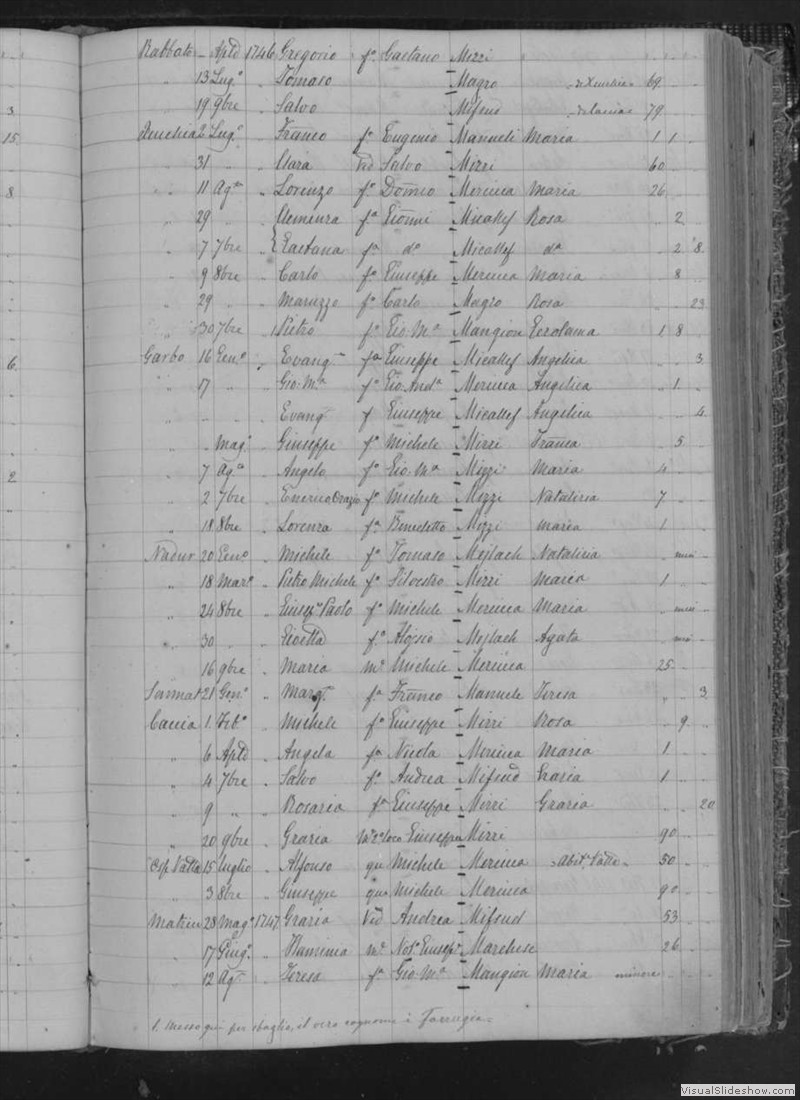 3
15
8
6
2
Rabbato - Aple 1746 Gregorio fo Gaetano Mizzi
" 13 Lugo " Tomaso Magro 69
" 19 9bre " Salvo Mifsud 79
2 Lugo " Franco fo Eugenio Manueli Maria 1 1
31 " " Clara Vid Salvo Mizzi 60
" 11 Ago " Lorenzo fo Domco Mercieca Maria 26
" 29 " " fa Giomi Micallef Rosa " 2
" 7 7bre { Gaetana fa do Micallef da " 2 8
" 9 8bre " Carlo fo Giuseppe Mercieca Maria " 8 "
" 29 " " Maruzzo fo Carlo Magro Rosa " " 23
" 30 7bre 1 Pietro fo Gio Ma Mangion Gerolama 1 8 "
Garbo 16 Geno " Evangta fa Giuseppe Micallef Angelica " " 3
" 17 " " Gio Ma fo Gio Anda Mercieca Angelica " 1 "
" - - " Evang f Giuseppe Micallef Angelica " " 4
" " Mago " Giuseppe fo Michele Mizzi Franca " 5
" 7 Ago " Angelo fo Gio Ma Mizzi Maria 4 "
" 2 7bre " Orazio fo Michele Mizzi Natalizia 7
" 18 8bre " Lorenza fa Benedetto Mizzi Maria 1 "
Nadur 20 Geno " Michele fo Tomaso Mejlach Natalizia
" 18 Maro " Pietro Michele fo Silvestro Mizzi Marca 1 "
" 24 8bre " Giuse Paolo fo Michele Mercieca Maria
" 30 " " fa Aloisio Mejlach Agata
" 16 9bre " Maria me Michele Mercieca 25
21 Geno " Marga fa Franco Manuele Teresa " " 3
Caccia 1 Febo " Michele fo Giuseppe Mizzi Rosa " 9 "
" 6 Aple " Angela fa Nicola Mercieca Maria 1
" 4 7bre " Salvo fo Andrea Mifsud Grazia 1 "
" 9 " " Rosaria fa Giuseppe Mizzi Grazia " " 20
" 20 9bre " Grazia Giuseppe Mizzi 90
15 Luglio " Alfonso qm Michele Mercieca Abite Valta 50
" 3 8bre " Giuseppe qm Michele Mercieca 90
Matrice 28 Mago 1747 Grazia Vid Andrea Mifsud 53
" 17 Giugo " Flaminia me Noto Giusepe Marchese 26
" 12 Ago " Teresa fa Gio Ma Mangion Maria minore
1. Messo qui per sbaglio, il vero cognome è Farrugia
VisualSlideshow.com